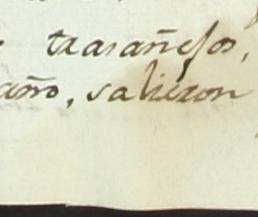 trasañejos,
año, salieron